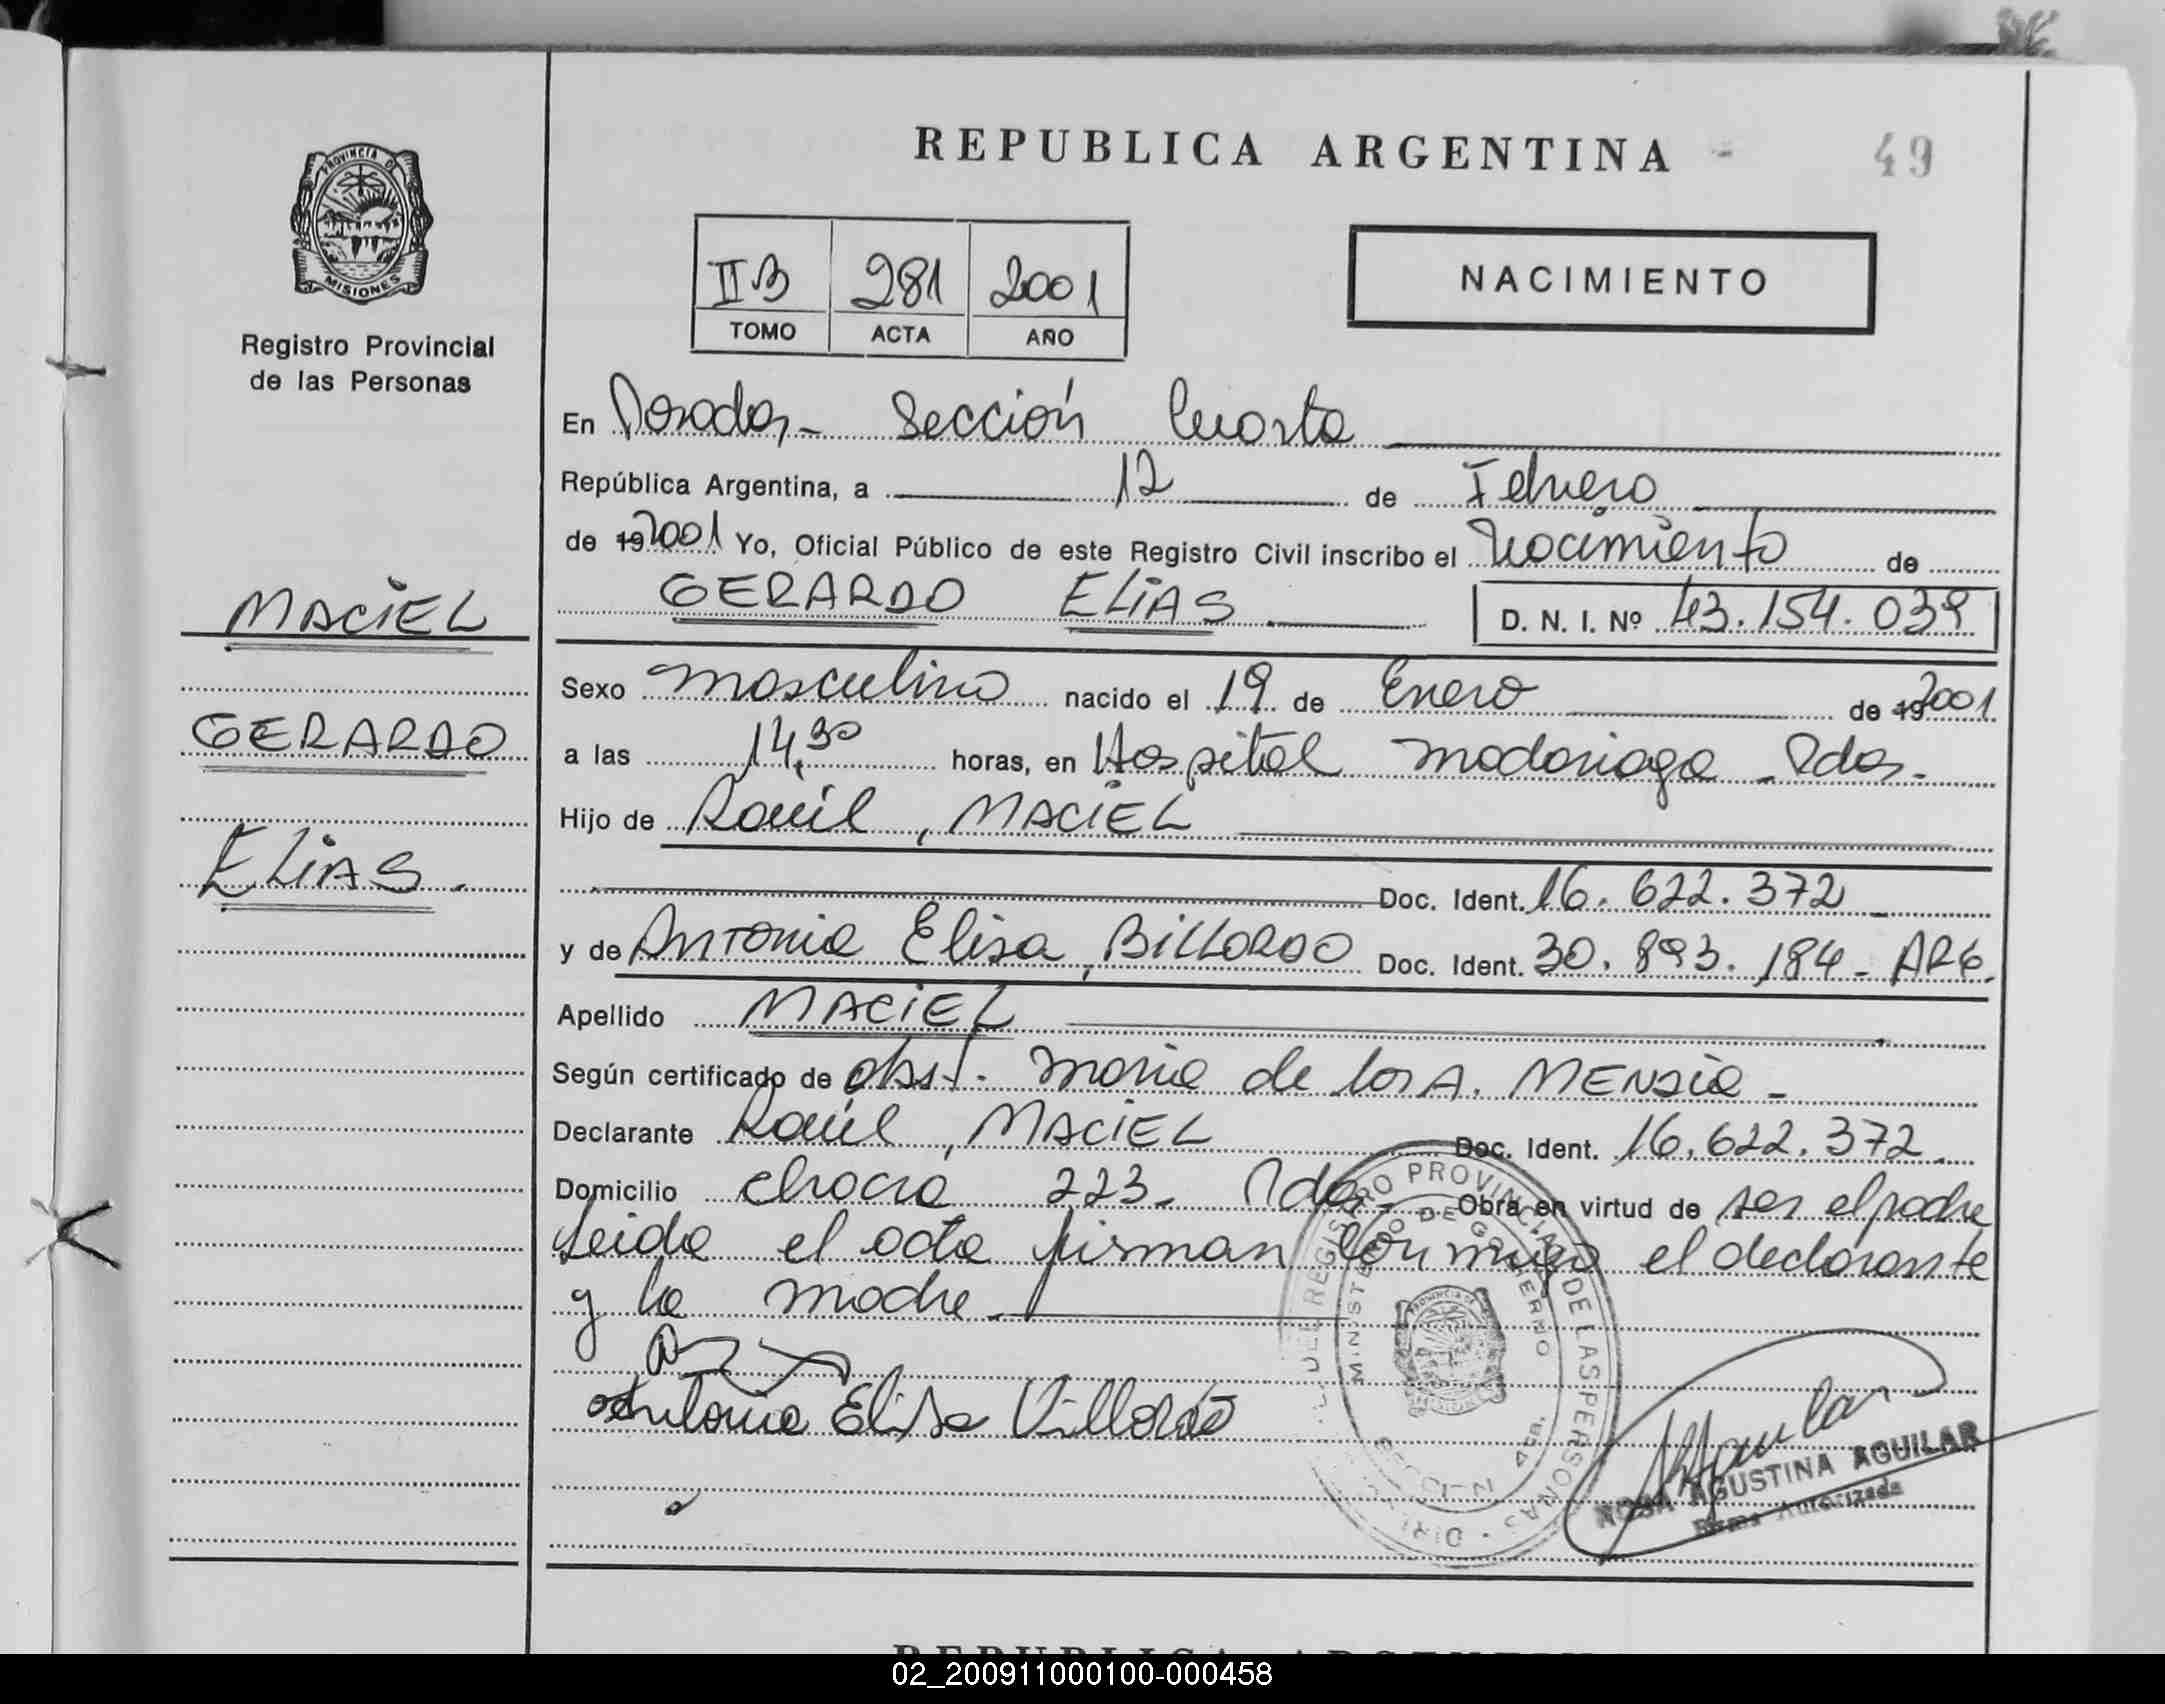 REPUBLICA ARGENTINA
49
PROVINCIA DE
MISIONES
Registro Provincial
de las Personas
II B 281 2001
TOMO ACTA AÑO
NACIMIENTO
En Posadas - Sección Cuarta
República Argentina, a 12 de Febrero
de 19 2001 Yo, Oficial Público de este Registro Civil inscribo el Nacimiento de
GERARDO ELIAS D. N. I. Nº 43.154.039
MACIEL
GERARDO
ELIAS.
Sexo masculino nacido el 19 de Enero de 19 2001
a las 14,30 horas, en Hospital Madariaga - Pdas.
Hijo de Raúl, MACIEL
Doc. Ident. 16.622.372
y de Antonia Elisa, BILLORDO Doc. Ident. 30.893.184 - ARG.
Apellido MACIEL
Según certificado de obst. Maria de los A. MENDIA -
Declarante Raúl, MACIEL Doc. Ident. 16.622.372.
Domicilio chacra 223 - Pdas. Obra en virtud de ser el padre
Leida el acta firman conmigo el declarante
y la madre
Antonia Elisa Villordo
REGISTRO PROVINCIAL DE LAS PERSONAS
MINISTERIO DE GOBIERNO
PROVINCIA DE
4ta.
ROSA AGUSTINA AGUILAR
Firma Autorizada
REPUBLICA ARGENTINA
02_200911000100-000458